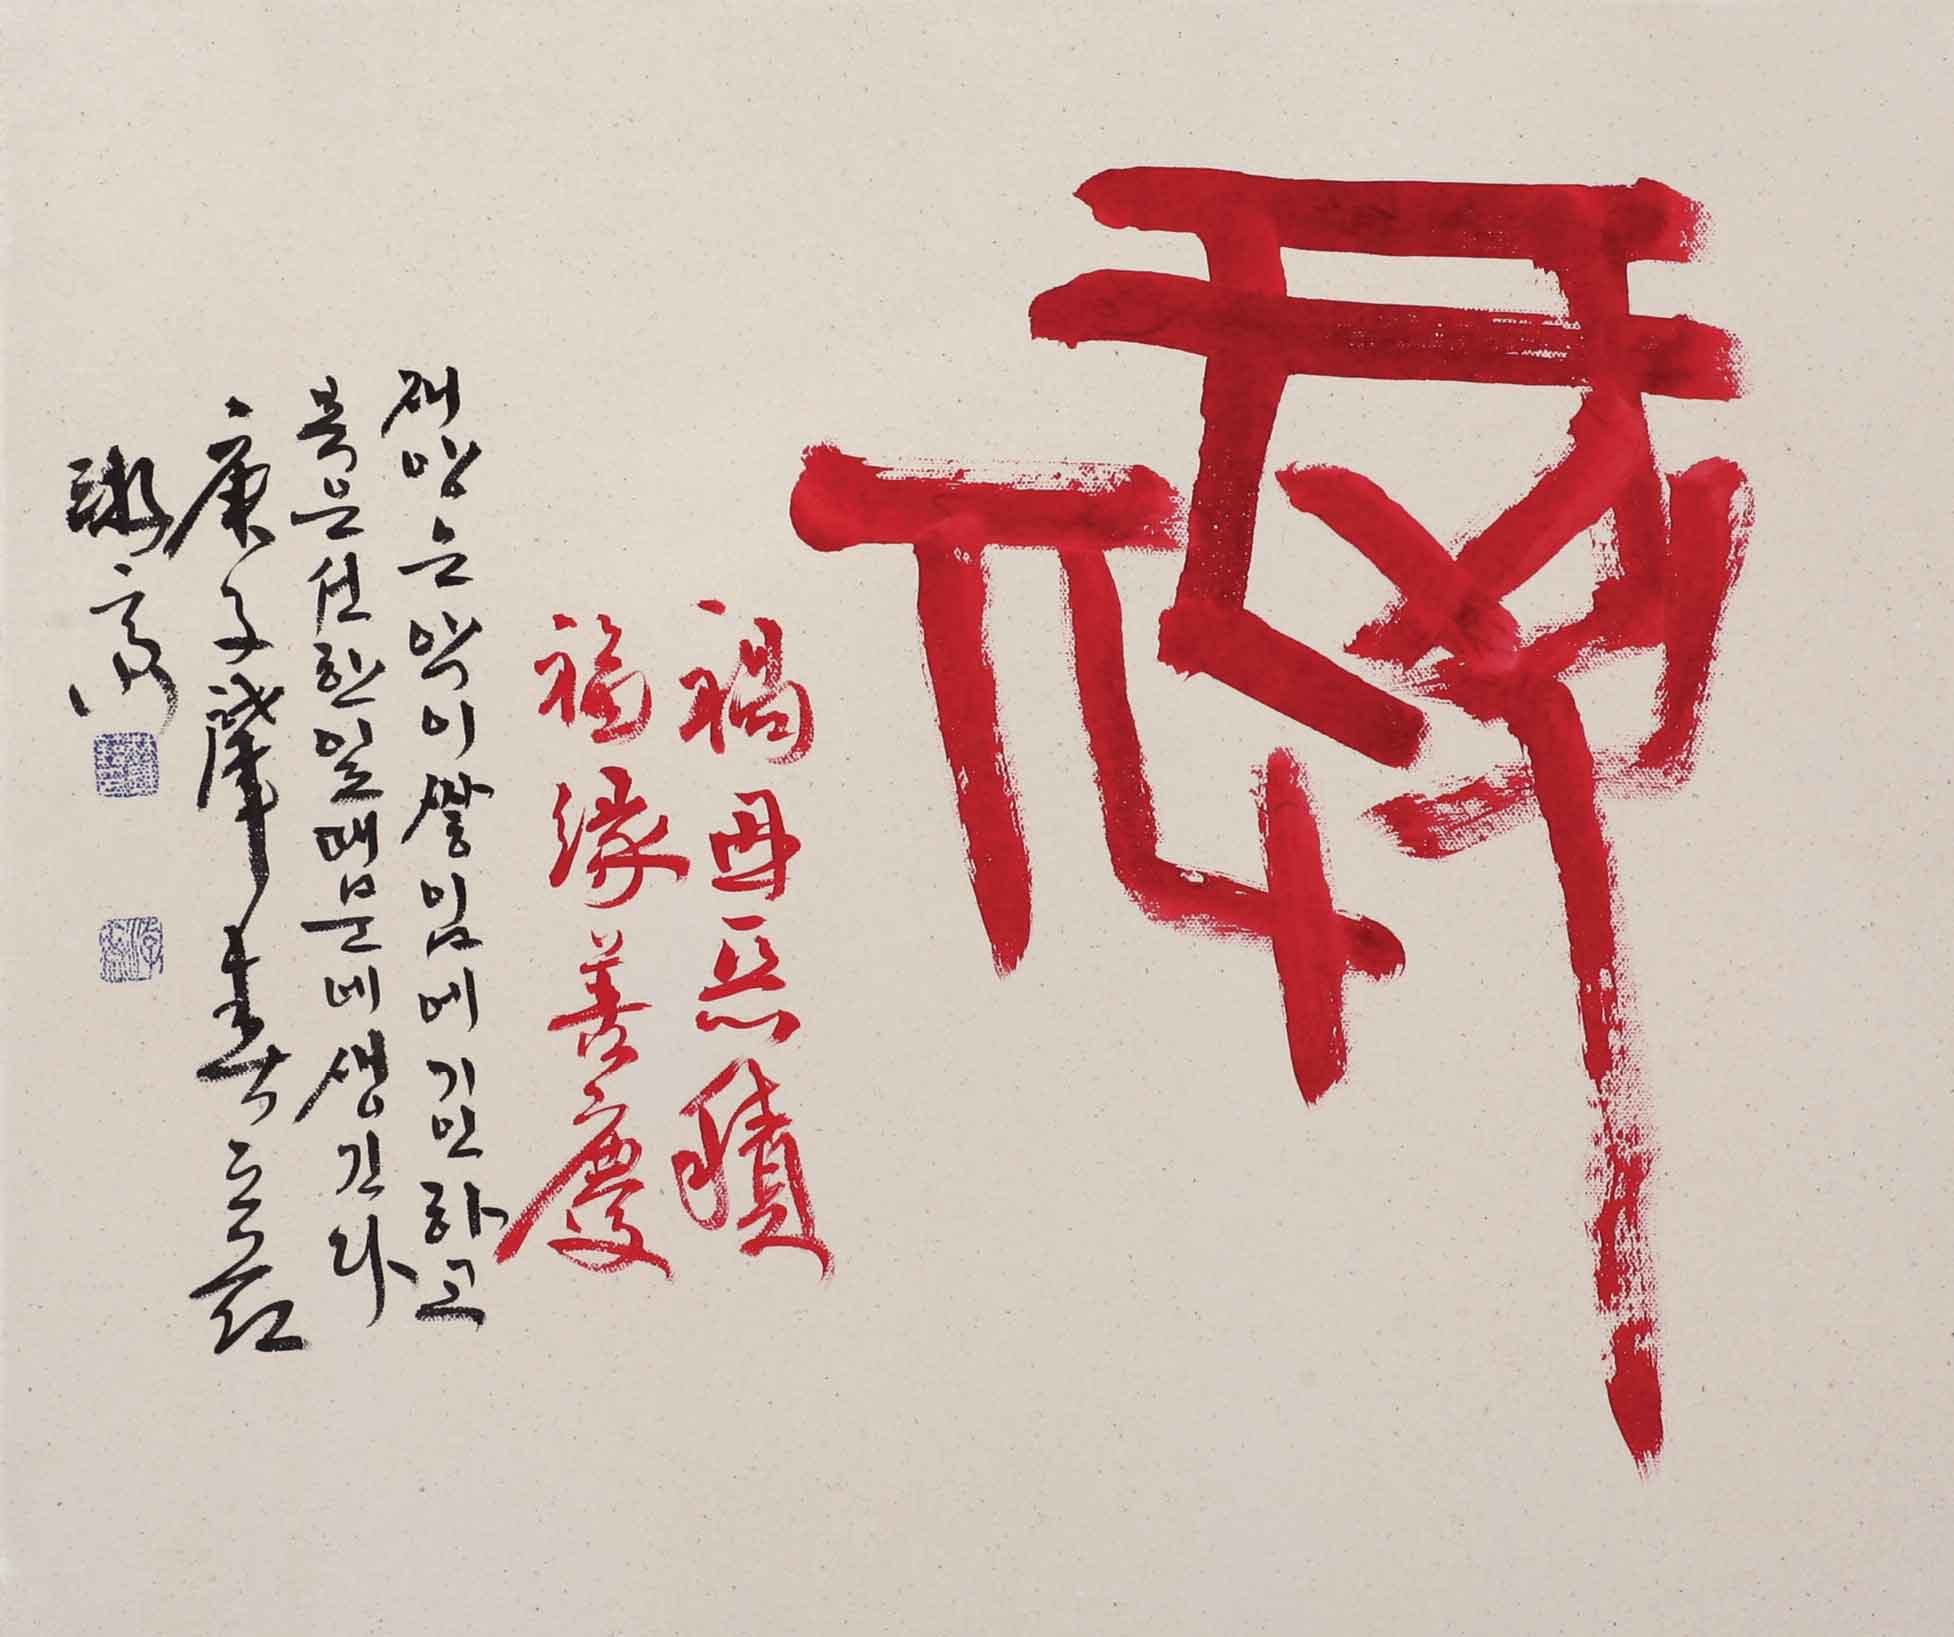 禍因惡積
福緣善慶
재앙은악이쌓임에기인하고
복은선한일때문에생긴다
庚子肇春